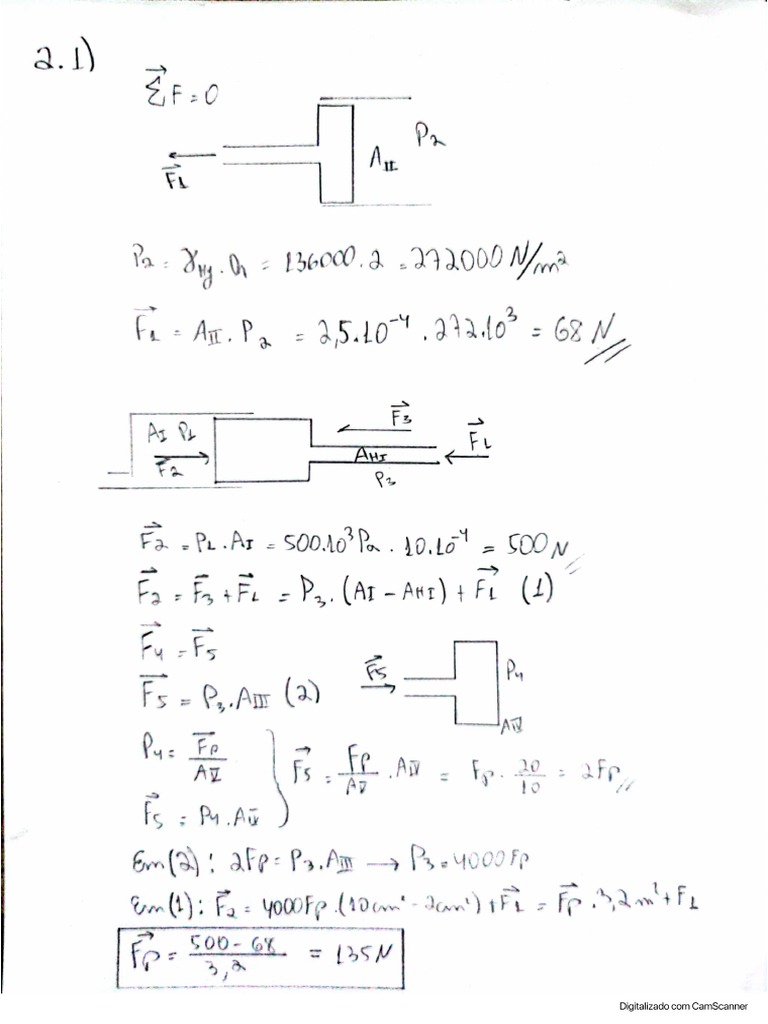 2.1)
Σ⃗F = 0
F⃗1
AII
P2
P2 = γHg . h = 136000 . 2 = 272000 N/m²
F⃗1 = AII . P2 = 2,5.10⁻⁴ . 272.10³ = 68 N
AI P1
F⃗2
F⃗3
AHI
P3
F⃗1
F⃗2 = P1 . AI = 500.10³ Pa . 10.10⁻⁴ = 500 N
F⃗2 = F⃗3 + F⃗1 = P3 . (AI - AHI) + F⃗1 (1)
F⃗4 = F⃗5
F⃗5 = P3 . AIII (2)
F⃗5
P4
AIV
P4 = F⃗p / AV
F⃗5 = Fp / AV . AIV = Fp . 20 / 10 = 2Fp
F⃗5 = P4 . AIV
Em(2): 2Fp = P3 . AIII → P3 = 4000Fp
Em(1): F⃗2 = 4000Fp . (10cm² - 2cm²) + F⃗1 = F⃗p . 3,2m² + F1
F⃗p = 500 - 68 / 3,2 = 135N
Digitalizado com CamScanner